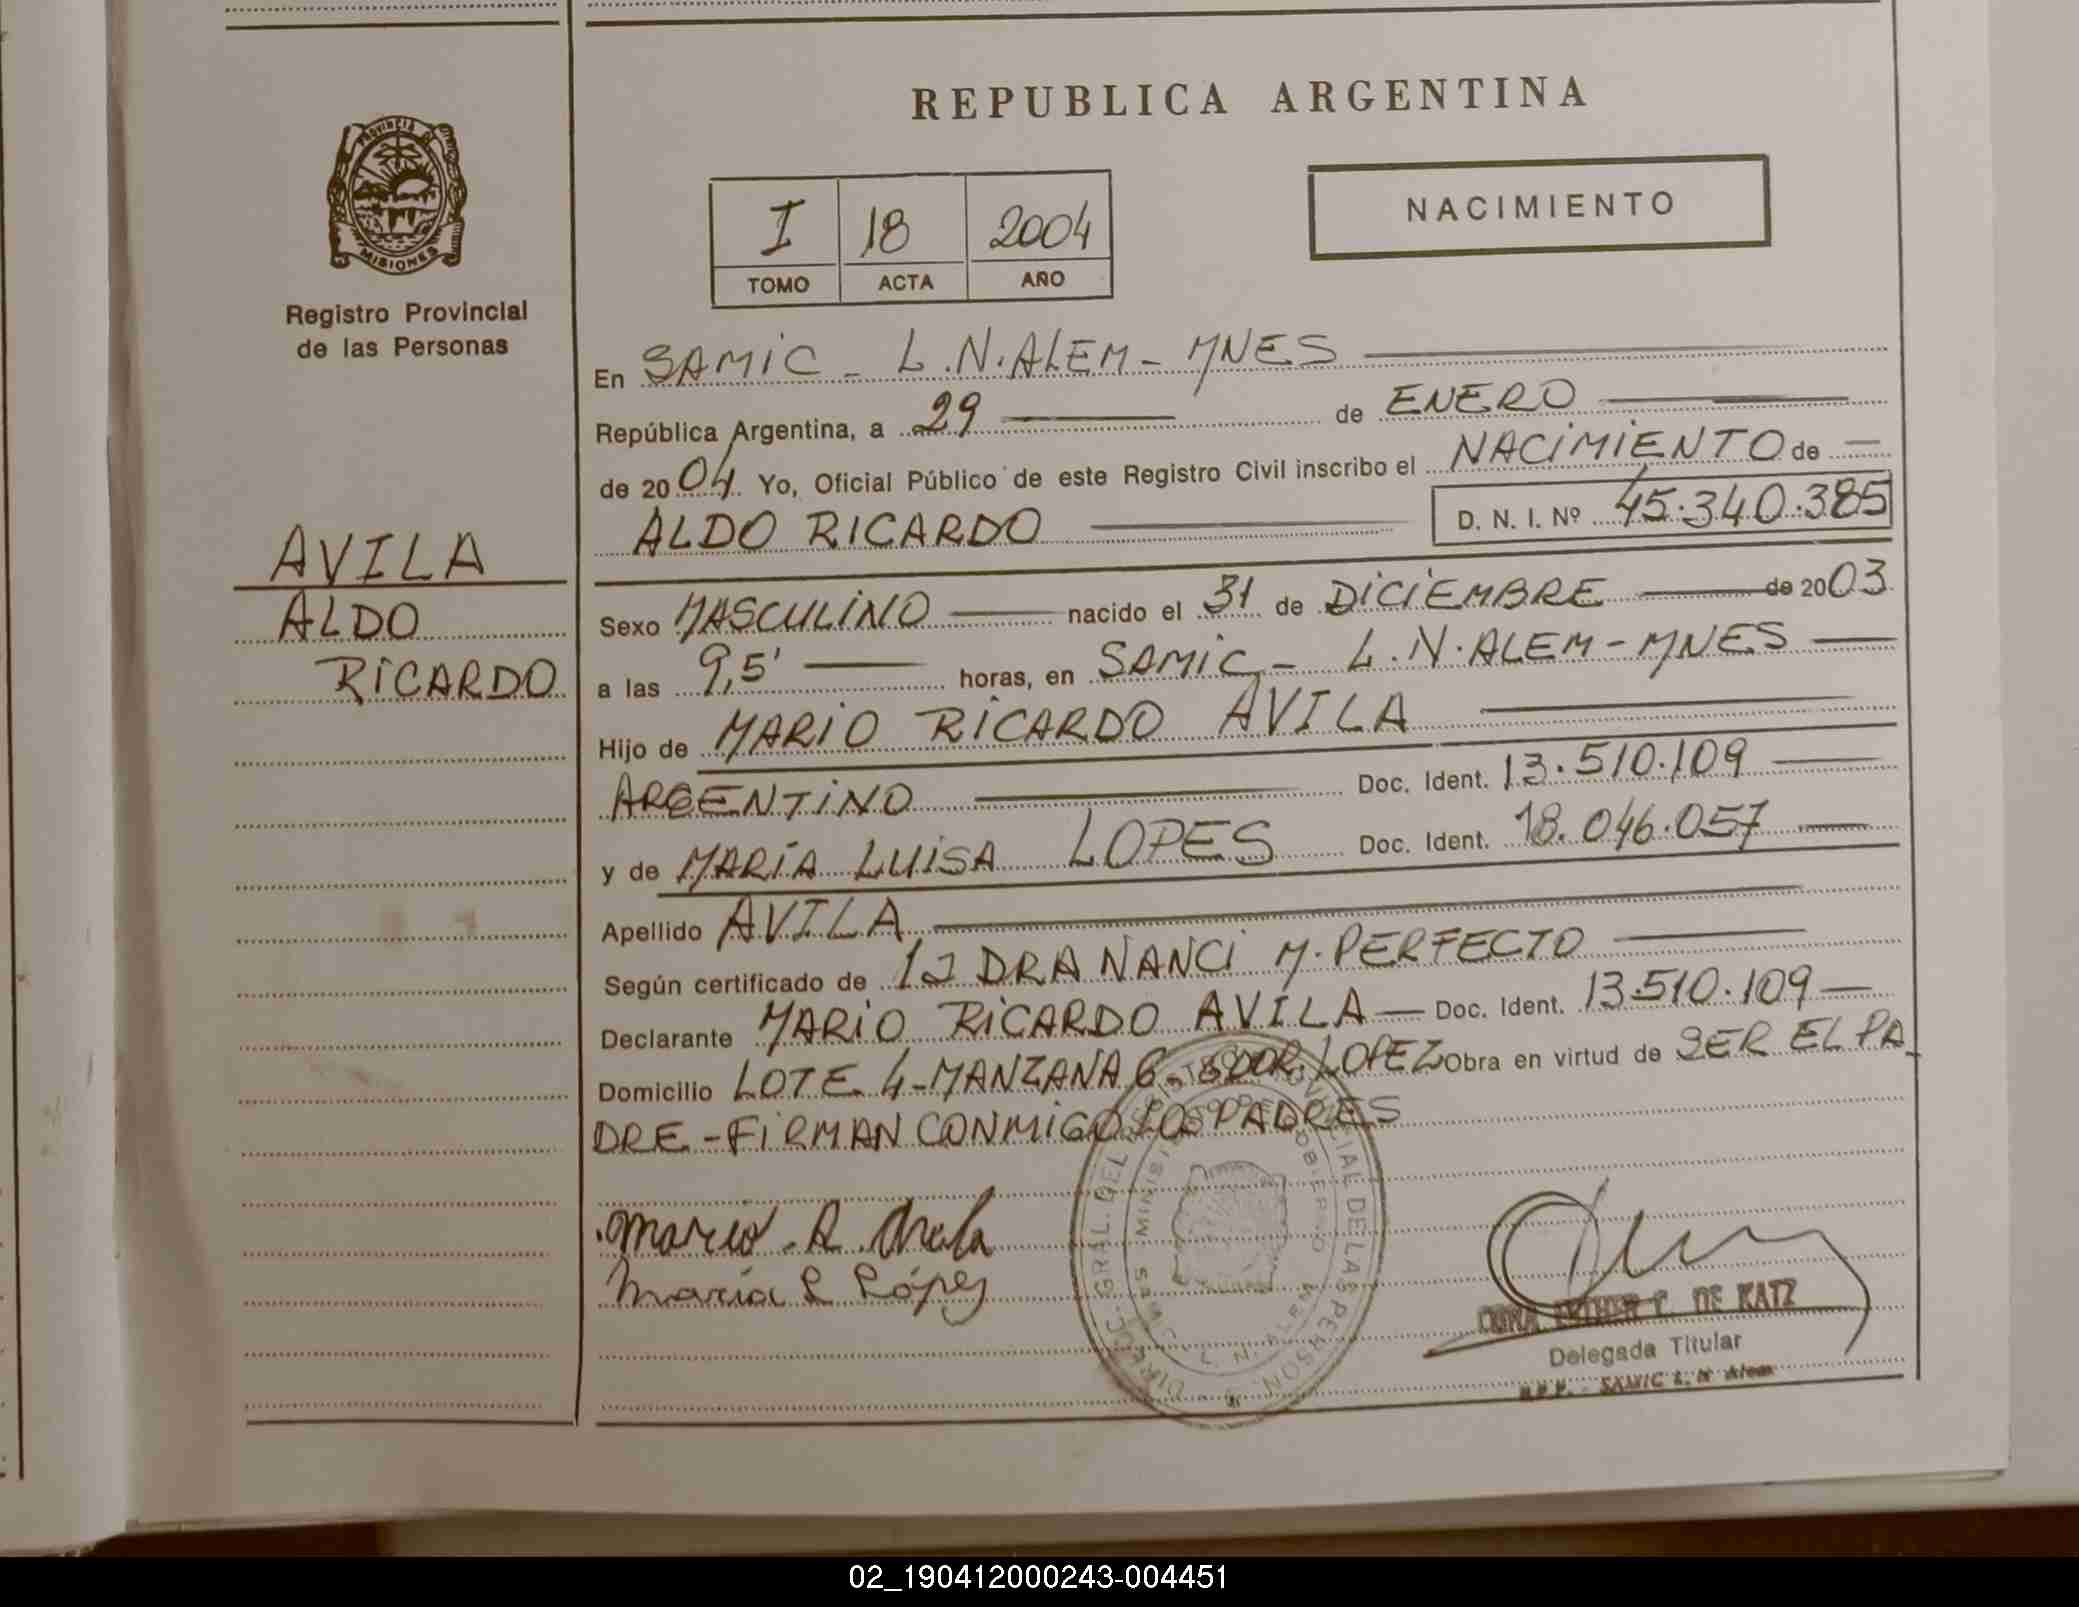 REPUBLICA ARGENTINA
PROVINCIA DE
MISIONES
Registro Provincial
de las Personas
I 18 2004
TOMO ACTA AÑO
NACIMIENTO
En SAMIC - L.N.ALEM - MNES
República Argentina, a 29 de ENERO
de 2004 Yo, Oficial Público de este Registro Civil inscribo el NACIMIENTO de
ALDO RICARDO D. N. I. Nº 45.340.385
AVILA
ALDO
RICARDO
Sexo MASCULINO nacido el 31 de DICIEMBRE de 2003
a las 9,5' horas, en SAMIC - L.N.ALEM - MNES
Hijo de MARIO RICARDO AVILA
ARGENTINO Doc. Ident. 13.510.109
y de MARÍA LUISA LOPES Doc. Ident. 18.046.057
Apellido AVILA
Según certificado de DRA NANCI M. PERFECTO
Declarante MARIO RICARDO AVILA - Doc. Ident. 13.510.109 -
Domicilio LOTE 4 - MANZANA 6 - LOPEZ Obra en virtud de SER EL PA
DRE - FIRMAN CONMIGO LOS PADRES
Mario R. Avila
María L López
DE KATZ
Delegada Titular
SAMIC L. N Alem
02_190412000243-004451